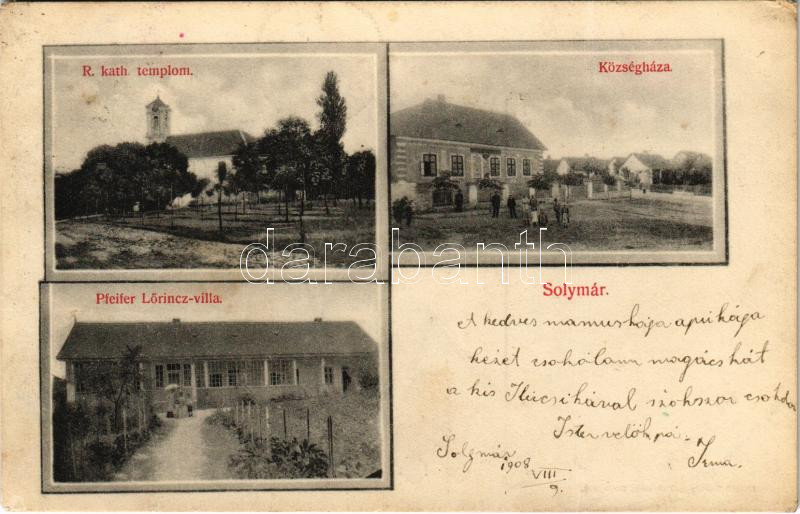 R. kath. templom.
Községháza.
darabanth.com
Pfeifer Lőrincz-villa.
Solymár.
A kedves mamuskája apukája
kezét csókolam magácskát
a kis Ilucsikával szokszor csokolom
Isten velök pá.
Solymár 1908 VIII 9.
Irma.